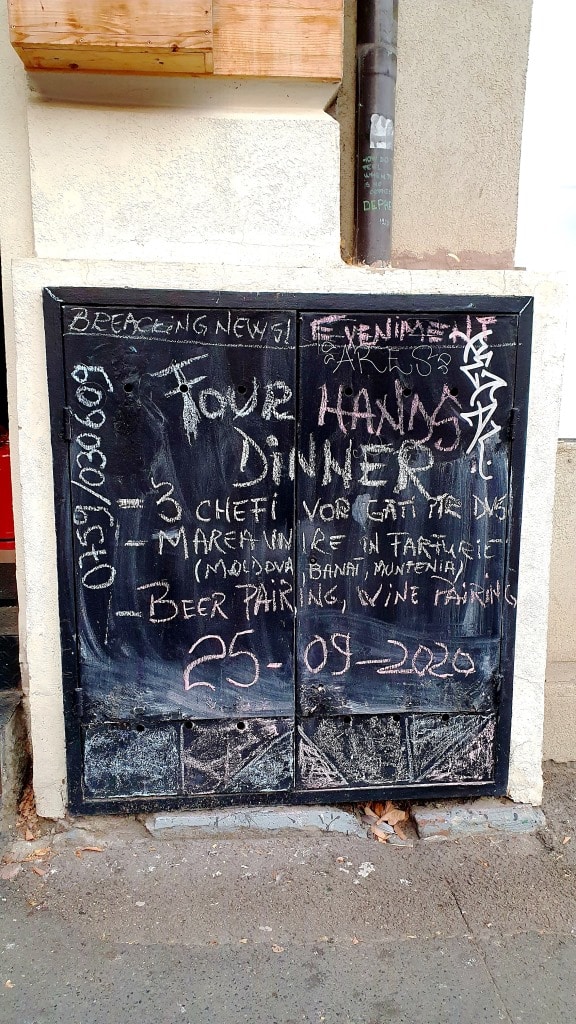 BREACKING NEWS! EVENIMENT
ARES
FOUR HANDS
DINNER
0759/030609
- 3 CHEFI VOR GĂTI PTR DVS!
- MAREA UNIRE IN FARFURIE
(MOLDOVA, BANAT, MUNTENIA)
- BEER PAIRING, WINE PAIRING
25-09-2020